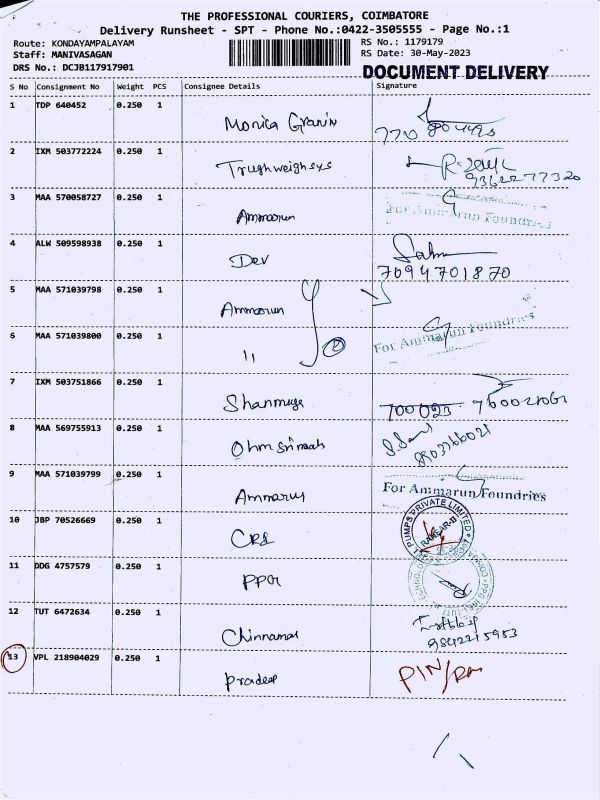 THE PROFESSIONAL COURIERS, COIMBATORE
Delivery Runsheet - SPT - Phone No.:0422-3505555 - Page No.:1
Route: KONDAYAMPALAYAM RS No.: 1179179
Staff: MANIVASAGAN RS Date: 30-May-2023
DRS No.: DCJB117917901
DOCUMENT DELIVERY
S No Consignment No Weight PCS Consignee Details Signature
1 TDP 640452 0.250 1
Monica
770
2 IXM 503772224 0.250 1
Trughweighsys
9362277320
3 MAA 570058727 0.250 1
Ammarun For Ammarun Foundries
4 ALW 509598938 0.250 1
Dev
7094701870
5 MAA 571039798 0.250 1
Ammarun
6 MAA 571039800 0.250 1
" For Ammarun Foundries
7 IXM 503751866 0.250 1
Shanmuga
8 MAA 569755913 0.250 1
9 MAA 571039799 0.250 1
Ammarun For Ammarun Foundries
10 JBP 70526669 0.250 1
CRI PUMPS PRIVATE LIMITED
11 DDG 4757579 0.250 1
PPG
12 TUT 6472634 0.250 1
Chinnamas
9842215953
13 VPL 218904029 0.250 1
Pradeep PIN/RM